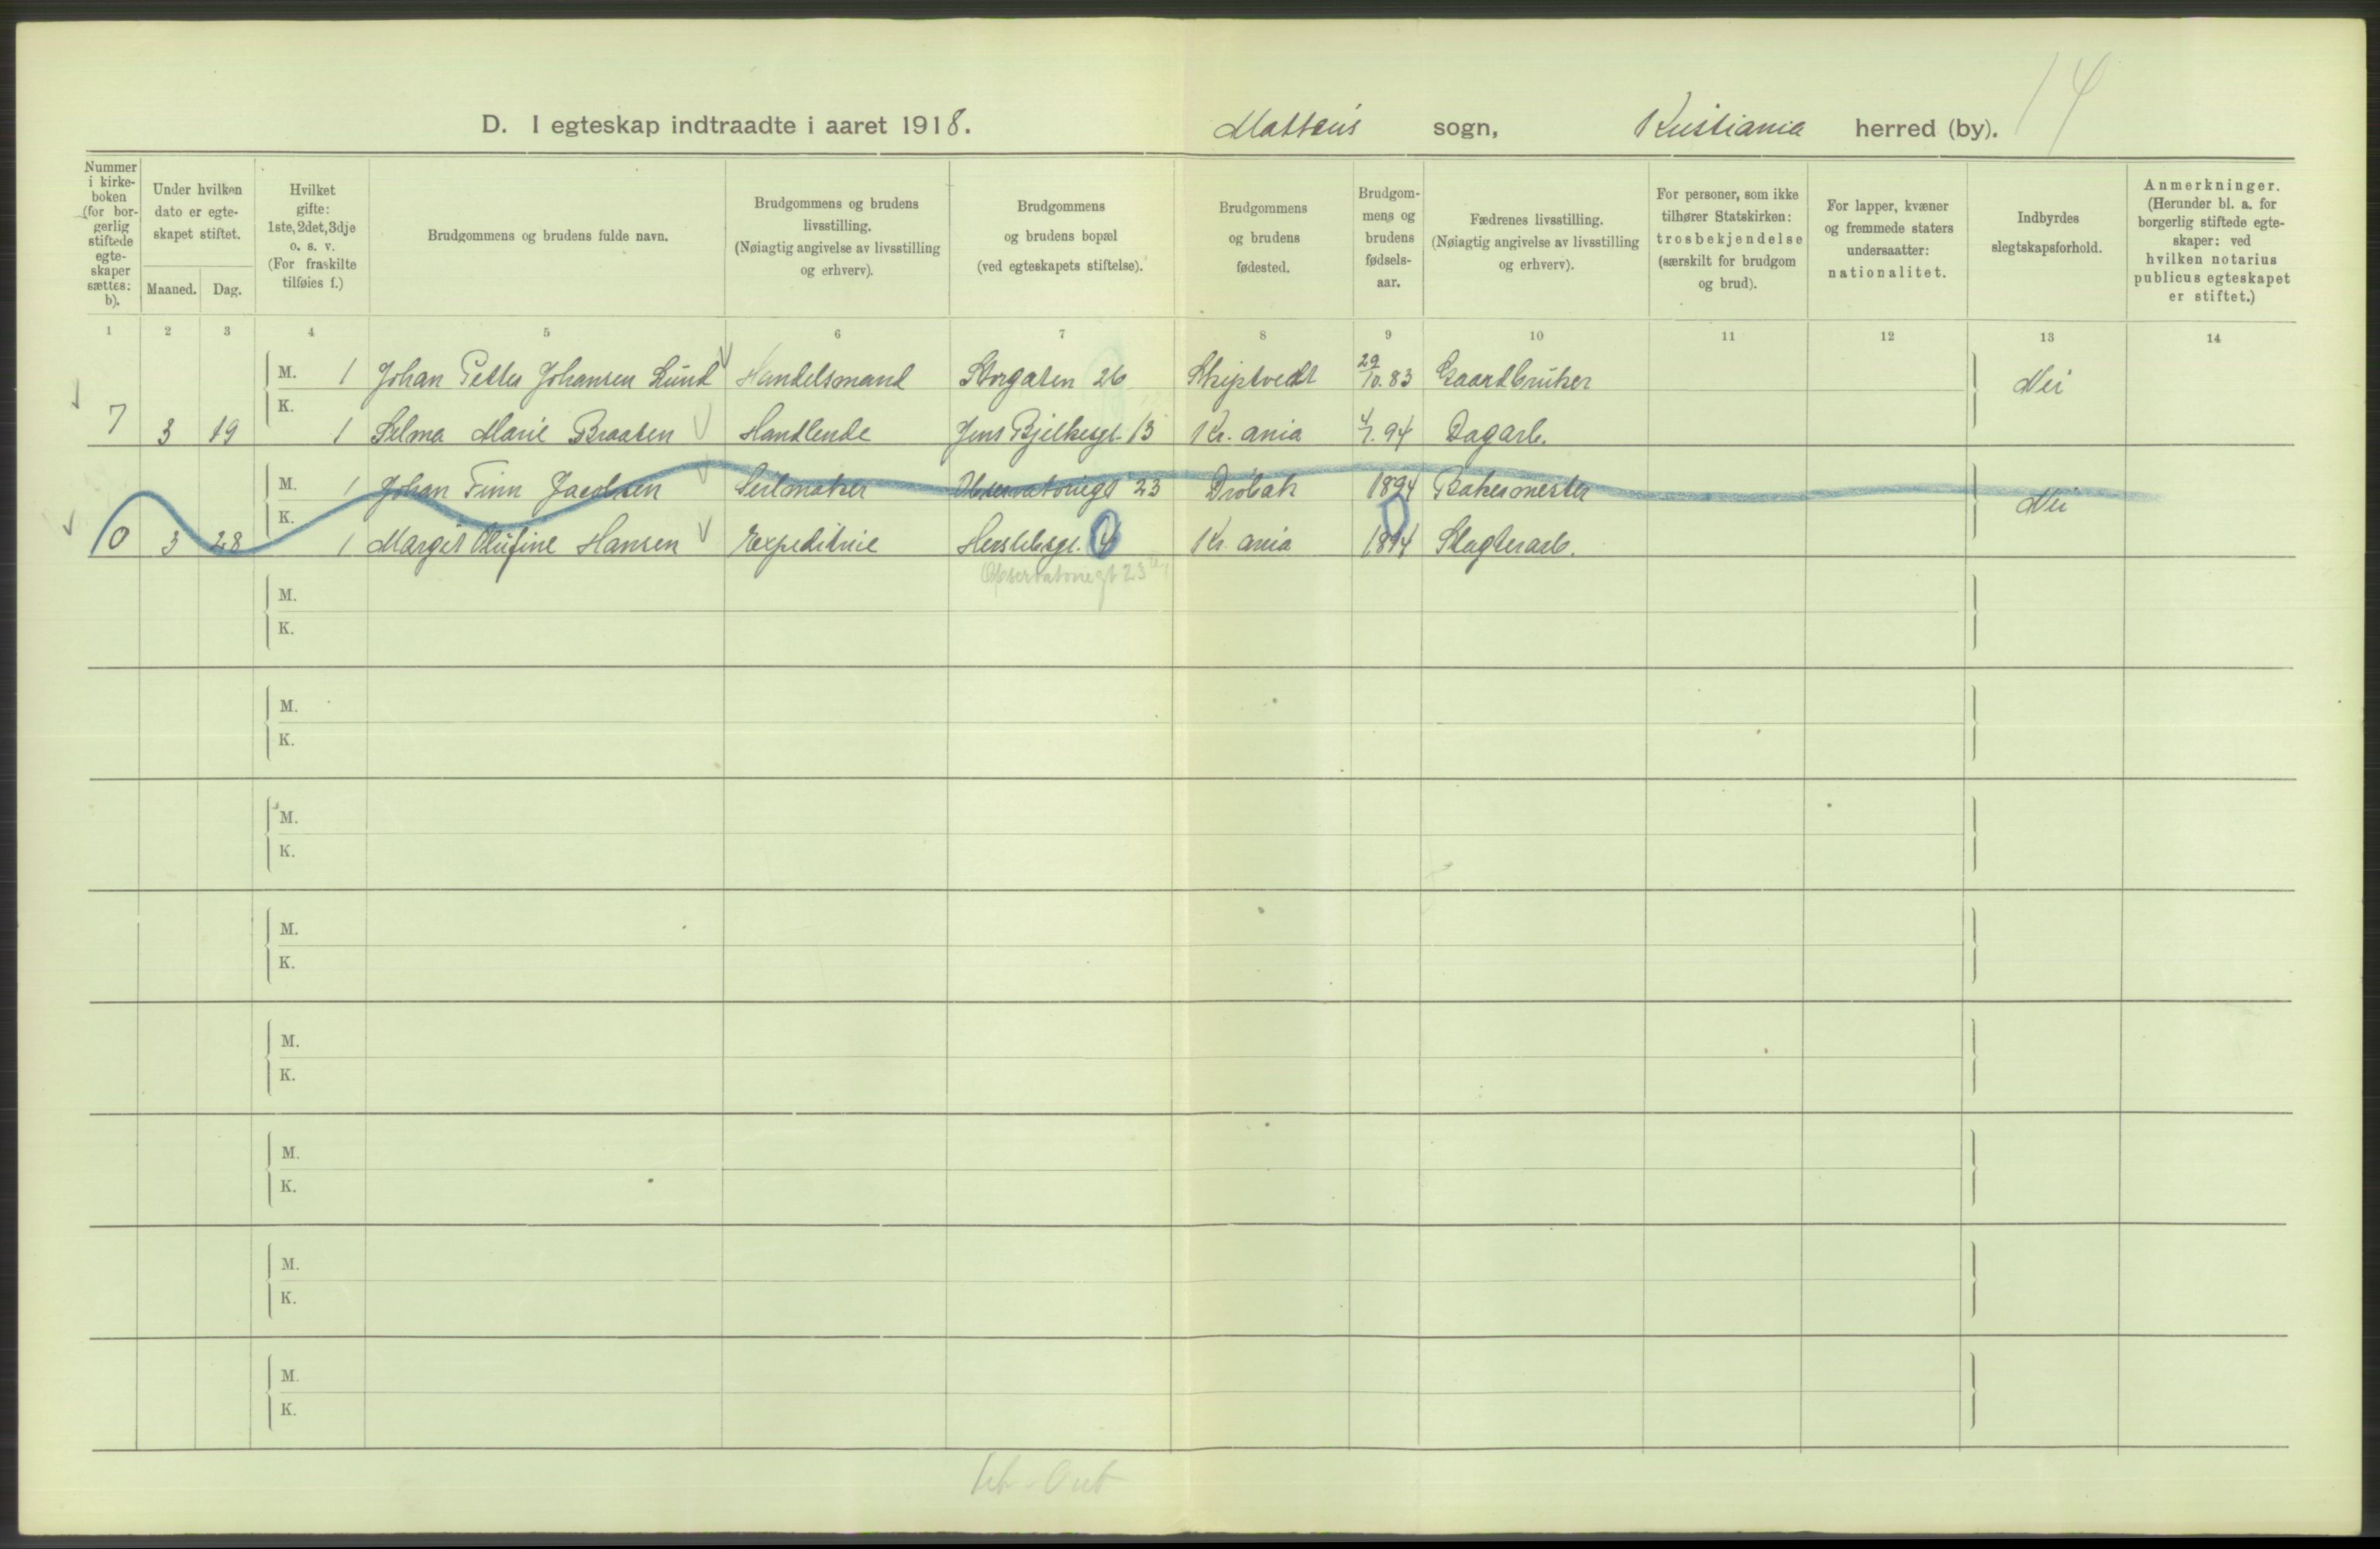 14
D. I egteskap indtraadte i aaret 1918. Mattæus sogn, Kristiania herred (by).
Nummer i kirke-boken (for bor-gerlig stiftede egte-skaper sættes: b).
Under hvilken dato er egte-skapet stiftet.
Maaned. Dag.
Hvilket gifte: 1ste, 2det, 3dje o. s. v. (For fraskilte tilføies f.)
Brudgommens og brudens fulde navn.
Brudgommens og brudens livsstilling. (Nøiagtig angivelse av livsstilling og erhverv).
Brudgommens og brudens bopæl (ved egteskapets stiftelse).
Brudgommens og brudens fødested.
Brudgom-mens og brudens fødsels-aar.
Fædrenes livsstilling. (Nøiagtig angivelse av livsstilling og erhverv).
For personer, som ikke tilhører Statskirken: trosbekjendelse (særskilt for brudgom og brud).
For lapper, kvæner og fremmede staters undersaatter: nationalitet.
Indbyrdes slegtskapsforhold.
Anmerkninger. (Herunder bl. a. for borgerlig stiftede egte-skaper: ved hvilken notarius publicus egteskapet er stiftet.)
1 2 3 4 5 6 7 8 9 10 11 12 13 14
M. 1 Johan Petter Johansen Lund Handelsmand Storgaten 26 Skiptvedt 29/10.83 Gaardbruker Nei
7 3 19 K. 1 Selma Marie Braaten Handlende Jens Bjelkesgt. 13 Kr. ania 4/7.94 Dagarb.
M. 1 Johan Finn Jacobsen Seilmaker Observatoriegt 23 Drøbak 1894 Bakermester Nei
10 3 28 K. 1 Margit Olufine Hansen Expeditrice Herslebsgt. 4 Kr. ania 1894 Slagterarb.
Observatoriegt 23
M.
K.
M.
K.
M.
K.
M.
K.
M.
K.
M.
K.
M.
K.
M.
K.